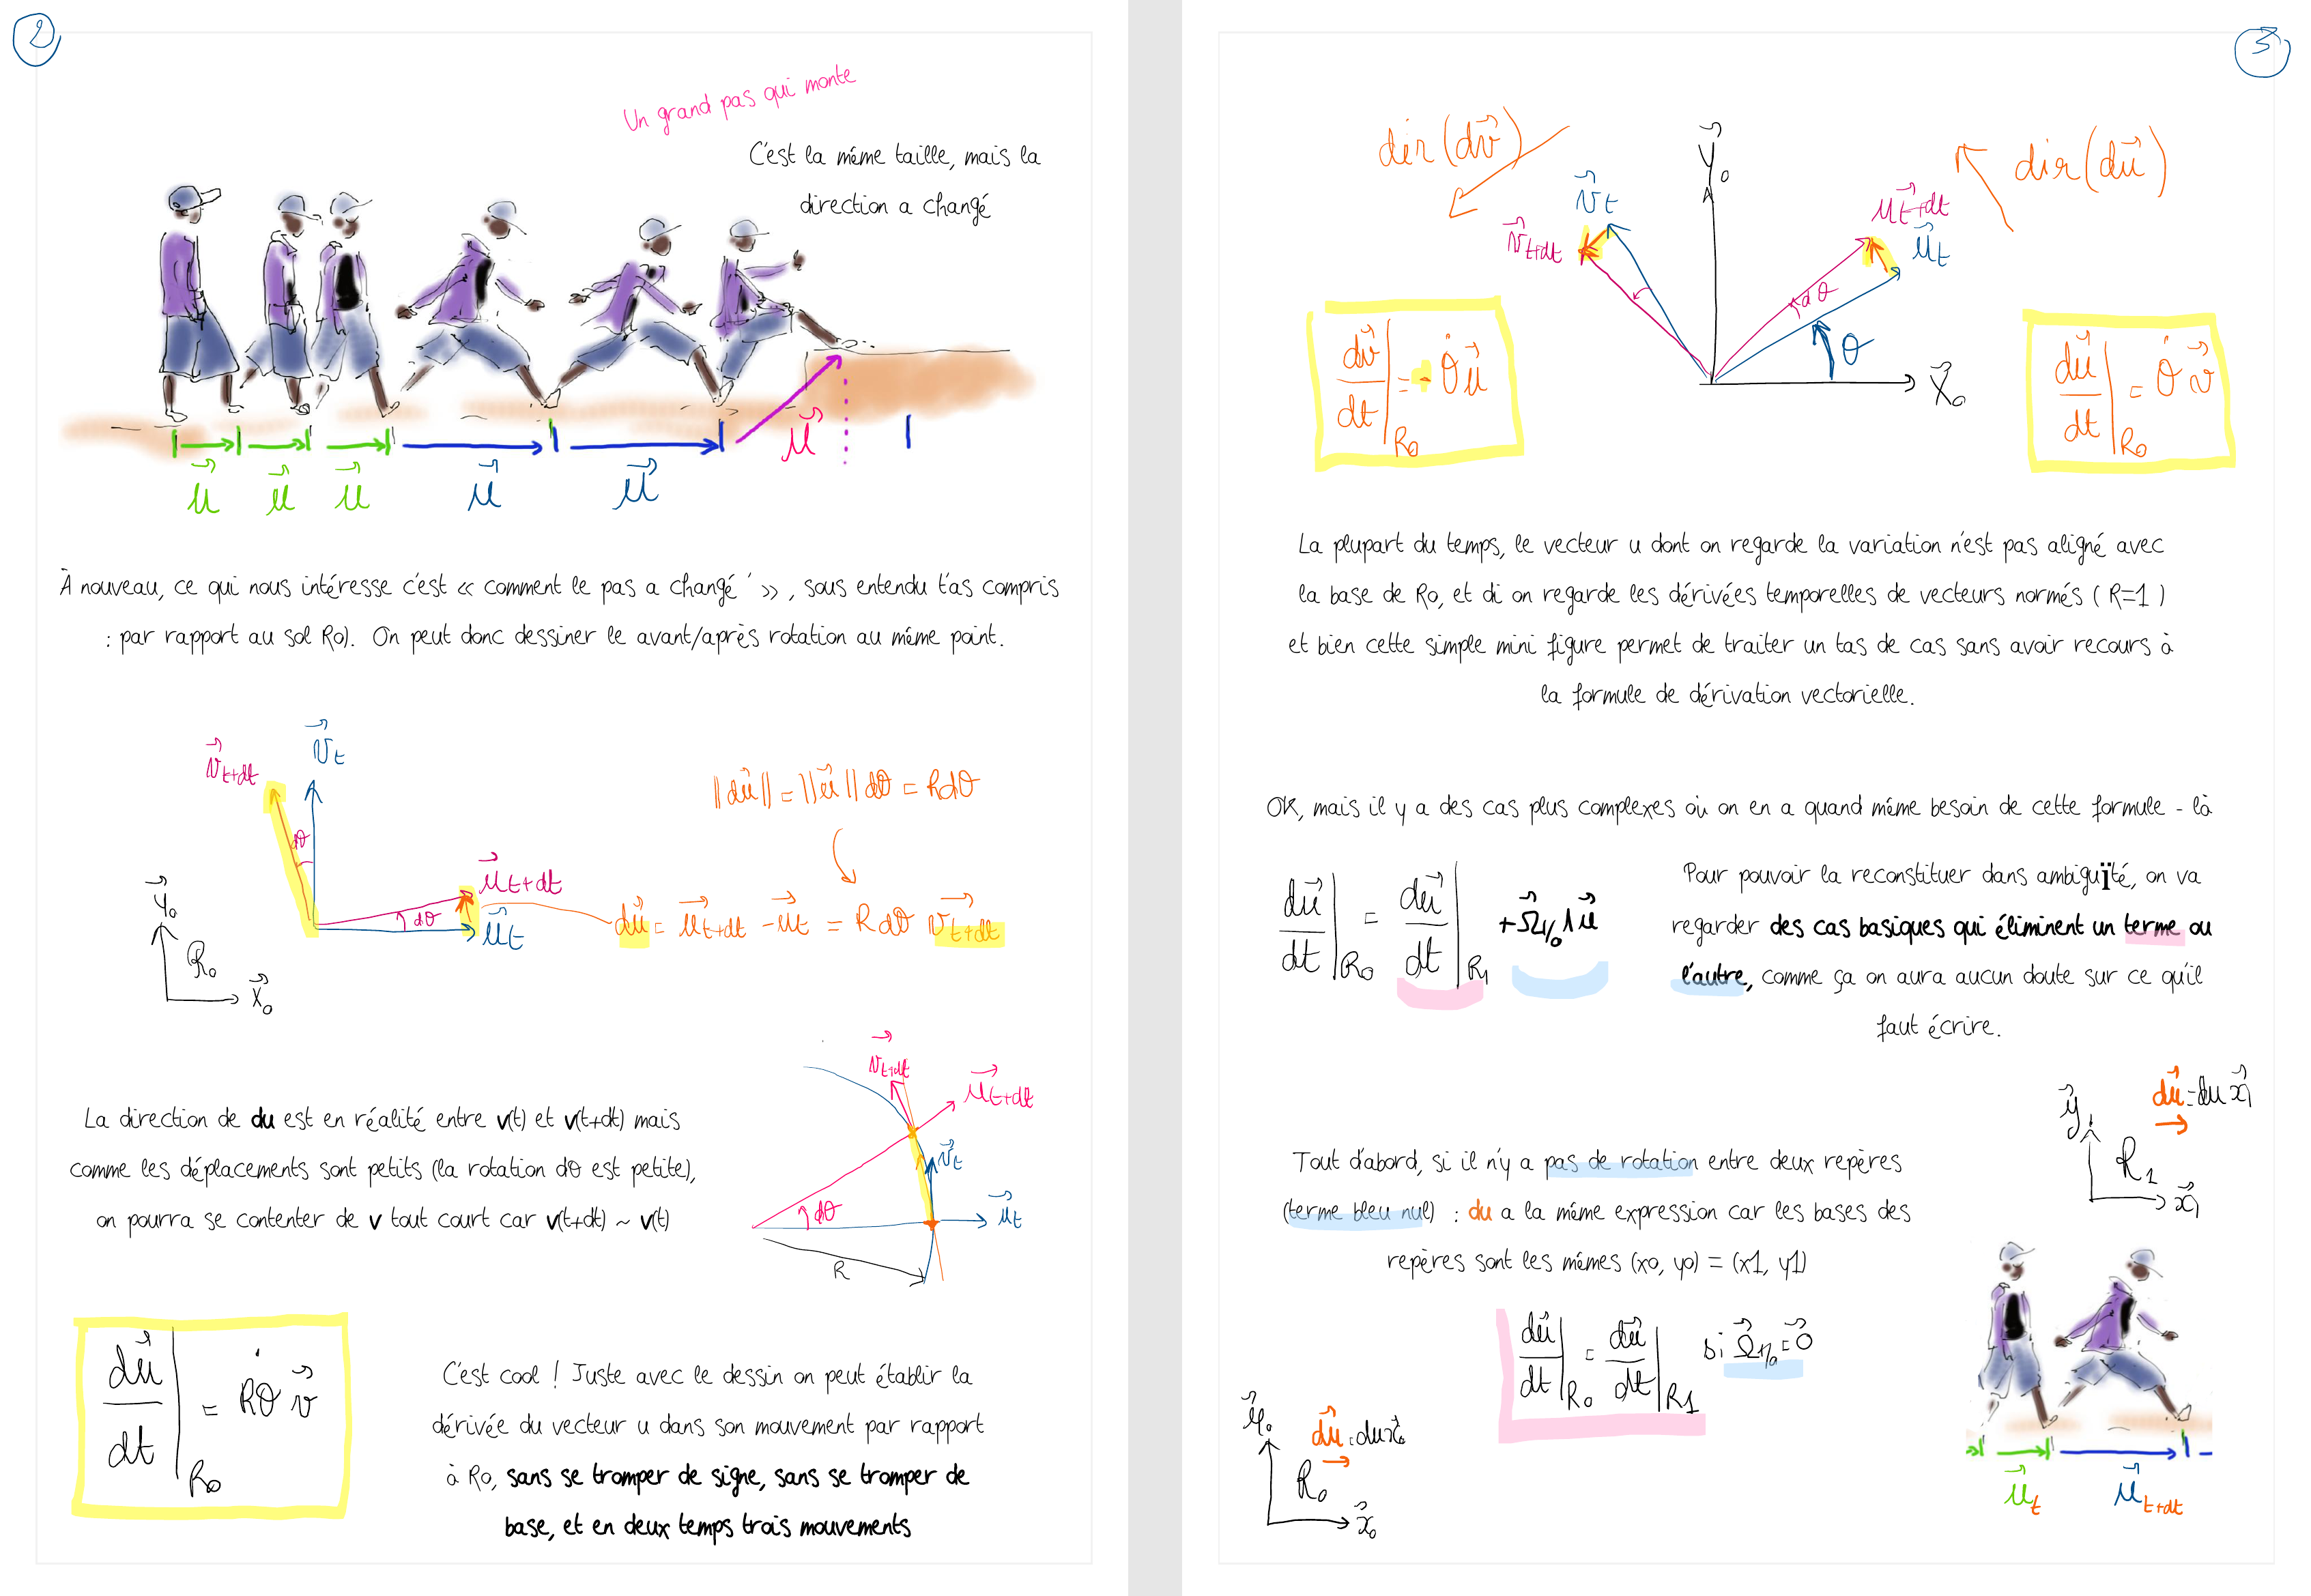 2
Un grand pas qui monte
C'est la même taille, mais la
direction a changé
u u u u u u
À nouveau, ce qui nous intéresse c'est « comment le pas a changé ' », sous entendu t'as compris
: par rapport au sol Ro). On peut donc dessiner le avant/après rotation au même point.
v⃗t+dt v⃗t
||du⃗|| = ||u⃗|| dθ = Rdθ
dθ
u⃗t+dt
dθ
u⃗t
du⃗ = u⃗t+dt - u⃗t = R dθ v⃗t+dt
y⃗0
R0
x⃗0
v⃗t+dt
u⃗t+dt
La direction de du est en réalité entre v(t) et v(t+dt) mais
comme les déplacements sont petits (la rotation dθ est petite),
on pourra se contenter de v tout court car v(t+dt) ~ v(t)
v⃗t
dθ
u⃗t
R
du⃗/dt|R0 = Rθ̇ v⃗
C'est cool ! Juste avec le dessin on peut établir la
dérivée du vecteur u dans son mouvement par rapport
à Ro, sans se tromper de signe, sans se tromper de
base, et en deux temps trois mouvements
3
dir(dv⃗)
y⃗0
dir(du⃗)
v⃗t
u⃗t+dt
v⃗t+dt
u⃗t
dθ
θ
x⃗0
dv⃗/dt|R0 = - θ̇ u⃗
du⃗/dt|R0 = θ̇ v⃗
La plupart du temps, le vecteur u dont on regarde la variation n'est pas aligné avec
la base de Ro, et di on regarde les dérivées temporelles de vecteurs normés ( R=1 )
et bien cette simple mini figure permet de traiter un tas de cas sans avoir recours à
la formule de dérivation vectorielle.
OK, mais il y a des cas plus complexes où on en a quand même besoin de cette formule - là
du⃗/dt|R0 = du⃗/dt|R1 + Ω⃗1/0 ∧ u⃗
Pour pouvoir la reconstituer dans ambiguïté, on va
regarder des cas basiques qui éliminent un terme ou
l'autre, comme ça on aura aucun doute sur ce qu'il
faut écrire.
y⃗1
du⃗ = du x⃗1
R1
x⃗1
Tout d'abord, si il n'y a pas de rotation entre deux repères
(terme bleu nul) : du a la même expression car les bases des
repères sont les mêmes (x0, y0) = (x1, y1)
du⃗/dt|R0 = du⃗/dt|R1 si Ω⃗1/0 = 0⃗
y⃗0
du⃗ = du x⃗0
R0
x⃗0
u⃗t
u⃗t+dt